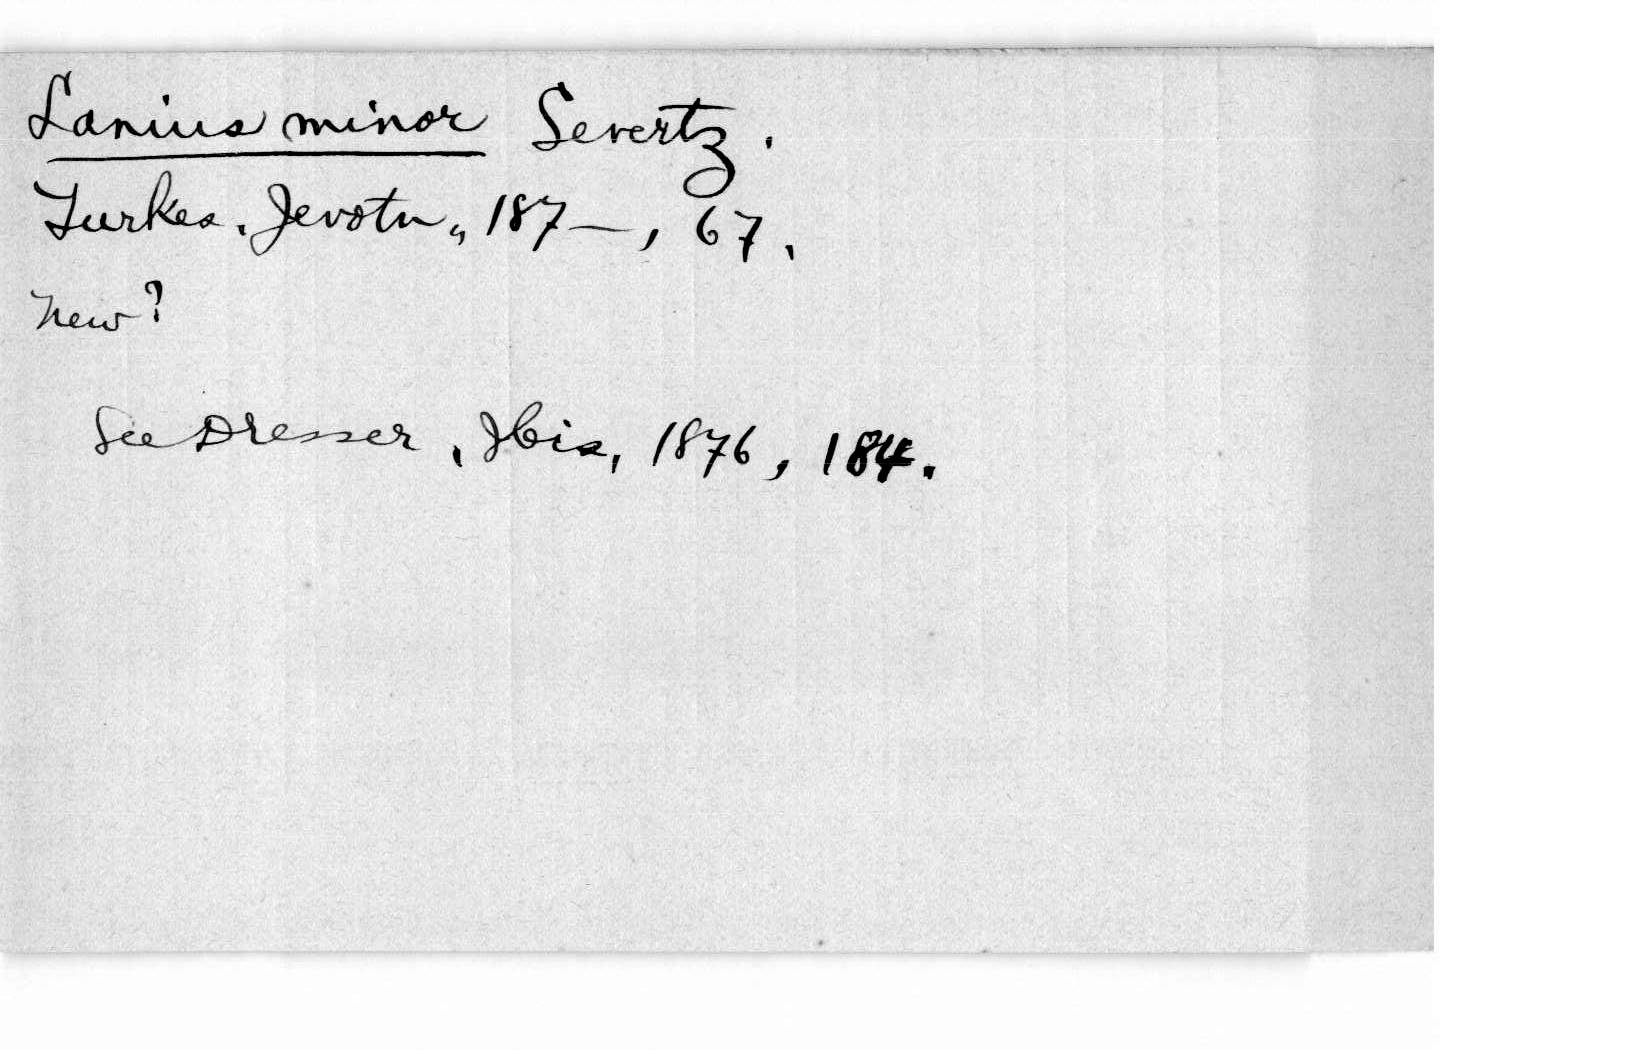 Lanius minor Severtz.
Turkes. Jevotn., 187—, 67.
New?
See Dresser, Ibis, 1876, 184.